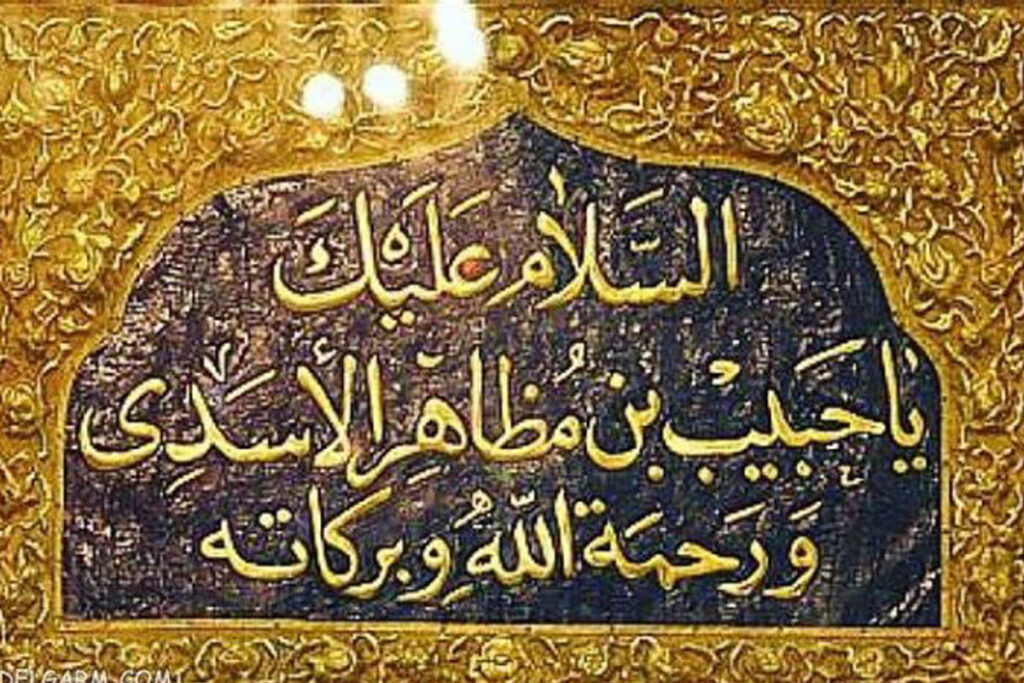 السَّلَامُ عَلَيْكَ
يا حَبيب بن مُظاهِر الأسَدِى
وَ رَحمَة اللّهُ وِ بركاته
DELGARM.COM